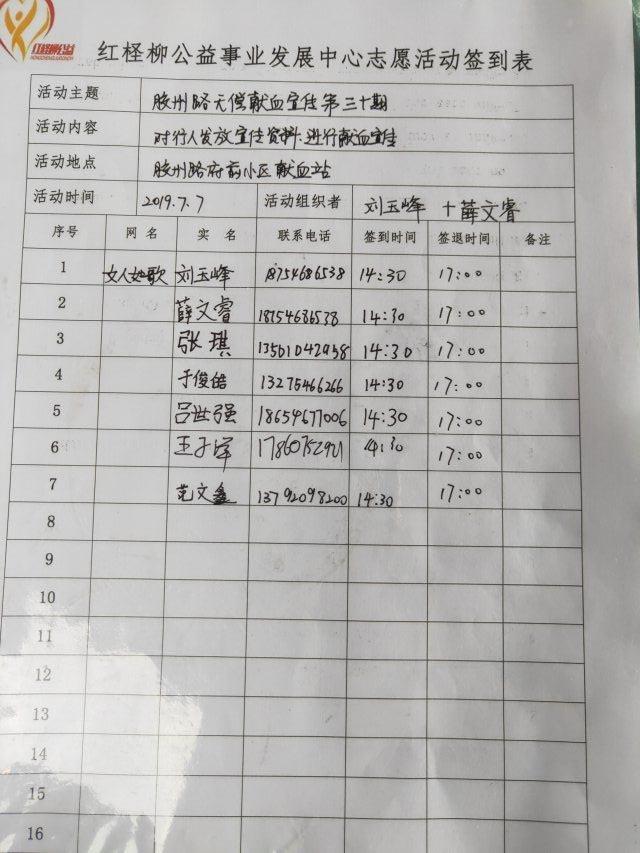 红柽柳公益
红柽柳公益事业发展中心志愿活动签到表
活动主题 胶州路无偿献血宣传第三十期
活动内容 对行人发放宣传资料.进行献血宣传
活动地点 胶州路府前小区献血站
活动时间 2019.7.7 活动组织者 刘玉峰 十薛文睿
序号 网 名 实 名 联系电话 签到时间 签退时间 备注
1 女人如歌 刘玉峰 18754686538 14:30 17:00
2 薛文睿 18754686538 14:30 17:00
3 张琪 13561042958 14:30 17:00
4 于俊皓 13275466266 14:30 17:00
5 吕世强 18654677006 14:30 17:00
6 王子泽 17860752921 14:30 17:00
7 范文鑫 13792098200 14:30 17:00
8
9
10
11
12
13
14
15
16